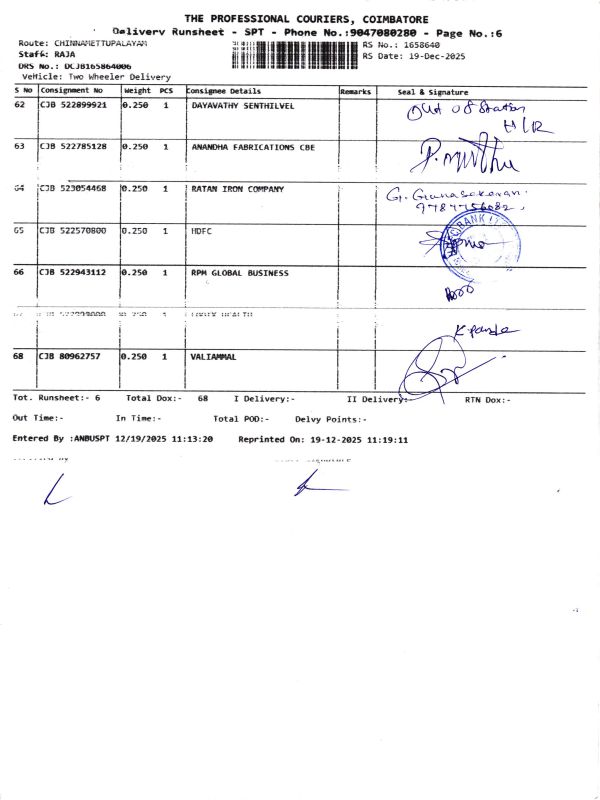 THE PROFESSIONAL COURIERS, COIMBATORE
Delivery Runsheet - SPT - Phone No.:9047080280 - Page No.:6
Route: CHINNAMETTUPALAYAM
RS No.: 1658640
Staff: RAJA
RS Date: 19-Dec-2025
DRS No.: DCJB165864006
Vehicle: Two Wheeler Delivery
S No Consignment No Weight PCS Consignee Details Remarks Seal & Signature
62 CJB 522899921 0.250 1 DAYAVATHY SENTHILVEL Out of Station
H/R
63 CJB 522785128 0.250 1 ANANDHA FABRICATIONS CBE P. Muthu
64 CJB 523054468 0.250 1 RATAN IRON COMPANY G. Gunasekaran
9787756082
65 CJB 522570800 0.250 1 HDFC BANK
66 CJB 522943112 0.250 1 RPM GLOBAL BUSINESS
0.250 1 HEALTH
68 CJB 80962757 0.250 1 VALIAMMAL
Tot. Runsheet:- 6 Total Dox:- 68 I Delivery:- II Delivery:- RTN Dox:-
Out Time:- In Time:- Total POD:- Delvy Points:-
Entered By :ANBUSPT 12/19/2025 11:13:20 Reprinted On: 19-12-2025 11:19:11